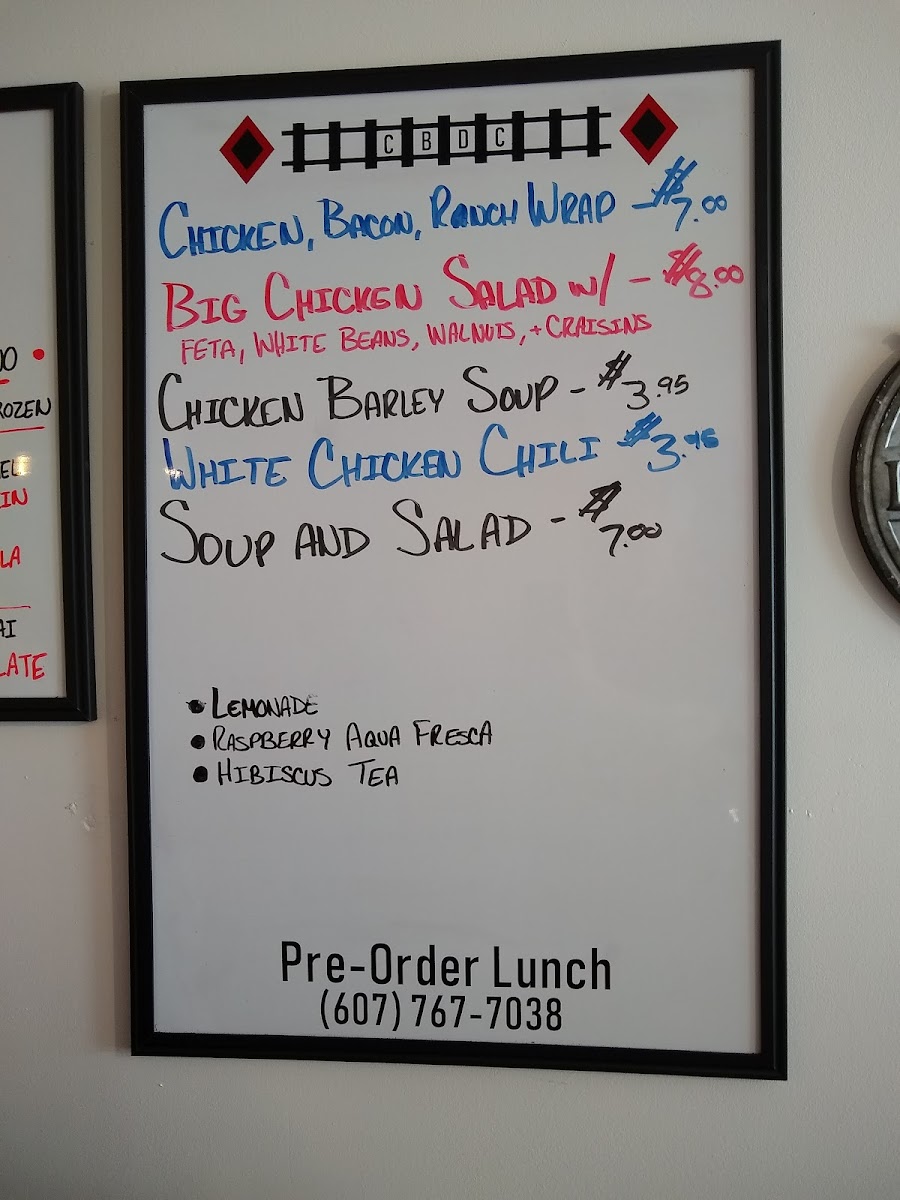 00
ROZEN
IN
LA
AI
LATE
CBDC
CHICKEN, BACON, RANCH WRAP - $7.00
BIG CHICKEN SALAD W/ - $8.00
FETA, WHITE BEANS, WALNUTS, + CRAISINS
CHICKEN BARLEY SOUP - $3.95
WHITE CHICKEN CHILI $3.95
SOUP AND SALAD - $7.00
• LEMONADE
• RASPBERRY AQUA FRESCA
• HIBISCUS TEA
Pre-Order Lunch
(607) 767-7038